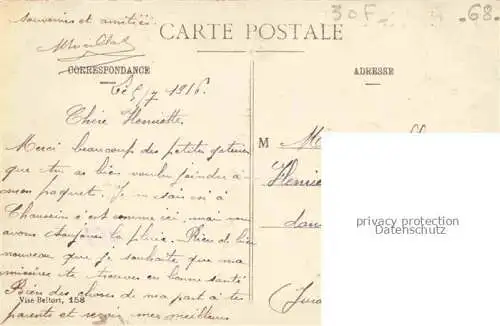 souvenirs et amitiés
30F
68
CARTE POSTALE
CORRESPONDANCE
ADRESSE
Le 5/7 1916.
Chère Henriette
M
Merci beaucoup des petites
que tu as bien voulu joindre à
mon paquet. Je ne sais si à
Chaussin c'est comme ici, mais nous
avons toujours la pluie. Rien de bien
nouveau que je souhaite que ma
missive te trouve en bonne santé
Bien des choses de ma part à tes
parents et reçois mes meilleurs
Visé Belfort, 158
Henrie
dans
(Jura
privacy protection
Datenschutz